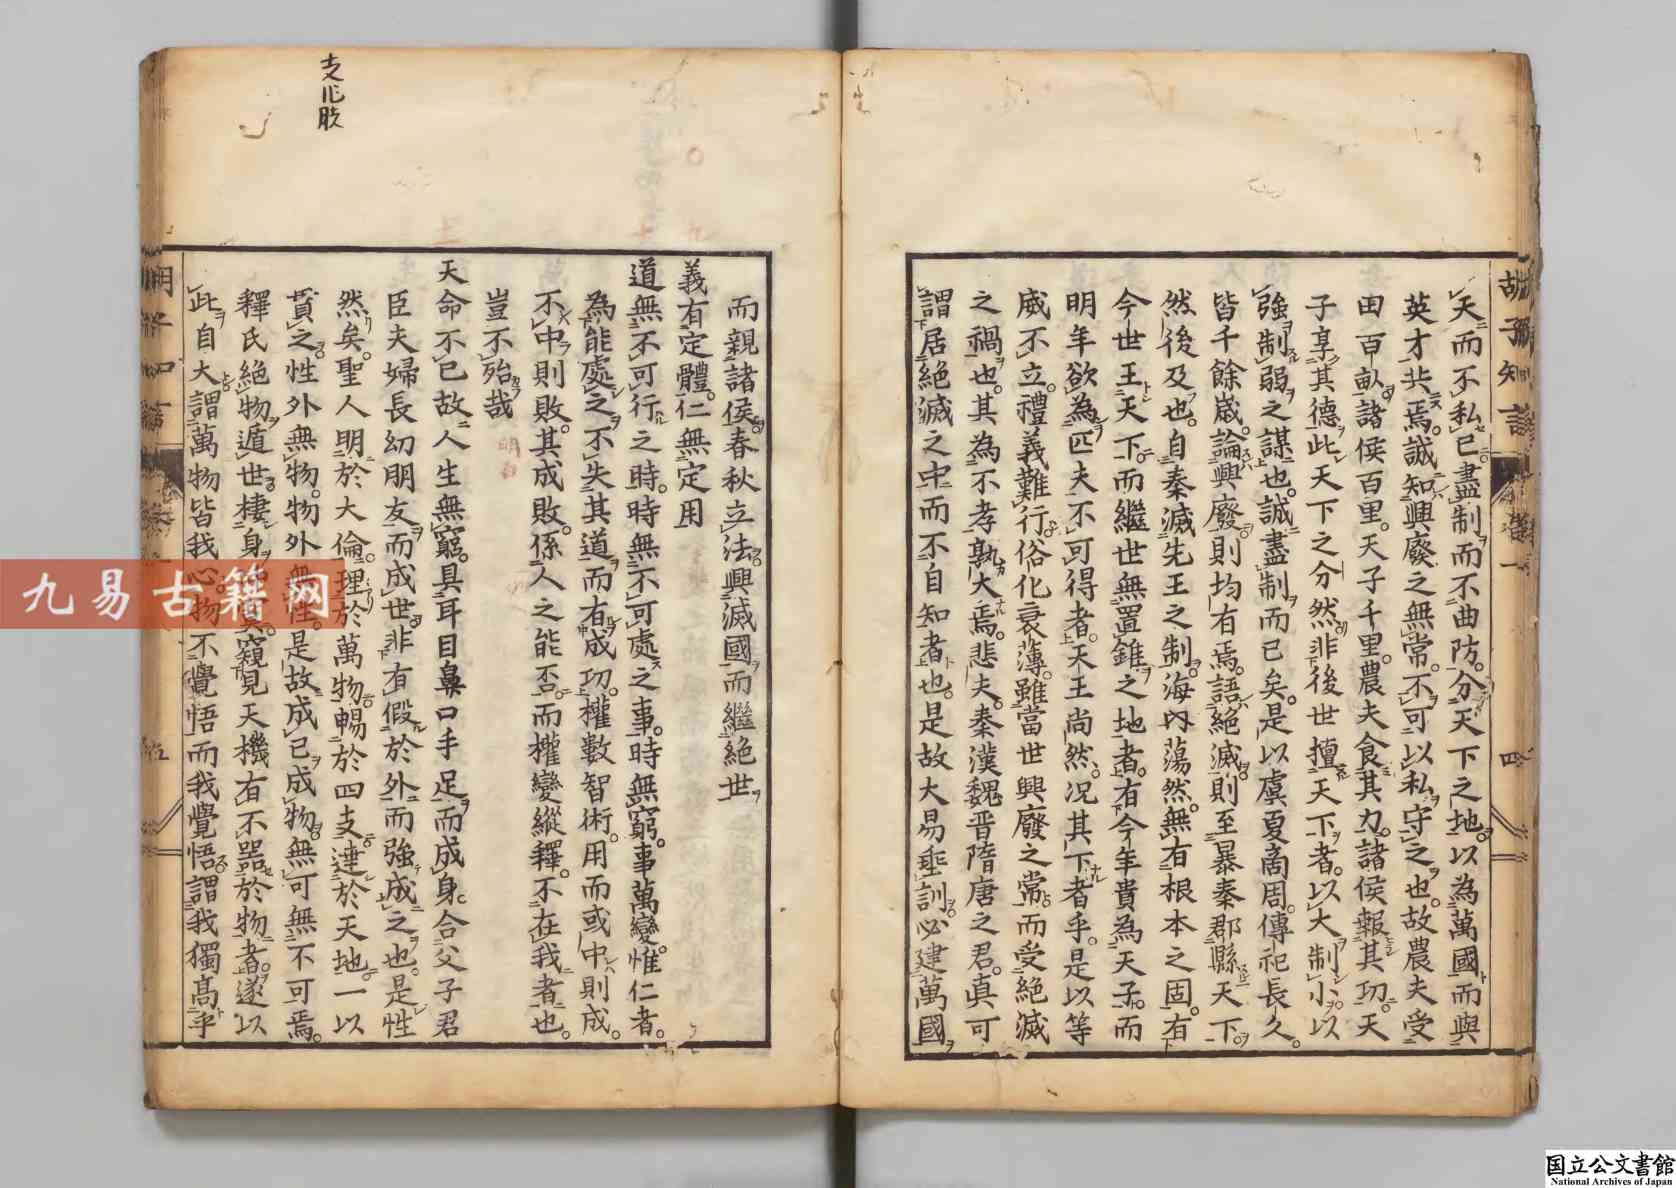 天而不私己盡制而不曲防分天下之地以為萬國而與
英才共焉誠知興廢之無常不可以私守之也故農夫受
田百畝諸侯百里天子千里農夫食其力諸侯報其功天
子享其德此天下之分然非後世擅天下者以大制小以
強制弱之謀也誠盡制而已矣是以虞夏商周傳祀長久
皆千餘嵗論興廢則均有焉語絕滅則至暴秦郡縣天下
然後及也自秦滅先王之制海內蕩然無有根本之固有
今世王天下而繼世無置錐之地者有今年貴為天子而
明年欲為匹夫不可得者天王尚然况其下者乎是以等
威不立禮義難行俗化衰薄雖當世興廢之常而受絕滅
之禍也其為不孝孰大焉悲夫秦漢魏晋隋唐之君真可
謂居絕滅之中而不自知者也是故大易垂訓必建萬國
胡子知言 一 四
而親諸侯春秋立法興滅國而繼絕世
義有定體仁無定用
道無不可行之時時無不可處之事時無窮事萬變惟仁者
為能處之不失其道而有成功權數智術用而或中則成
不中則敗其成敗係人之能否而權變縱釋不在我者也
豈不殆哉
明白
天命不已故人生無窮具耳目鼻口手足而成身合父子君
臣夫婦長幼朋友而成世非有假於外而強成之也是性
然矣聖人明於大倫理於萬物暢於四支達於天地一以
貫之性外無物物外無性是故成己成物無可無不可焉
釋氏絕物遁世棲身冲寞窺見天機有不器於物者遂以
此自大謂萬物皆我心物不覺悟而我覺悟謂我獨髙乎
支化肢
九易古籍网
国立公文書館
National Archives of Japan